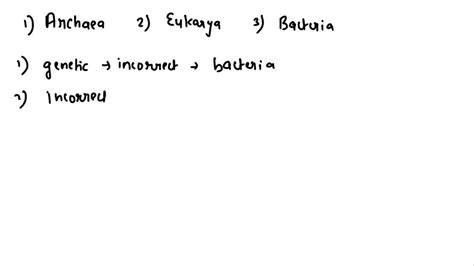 1) Archaea 2) Eukarya 3) Bacteria
1) genetic → incorrect → bacteria
2) Incorrect